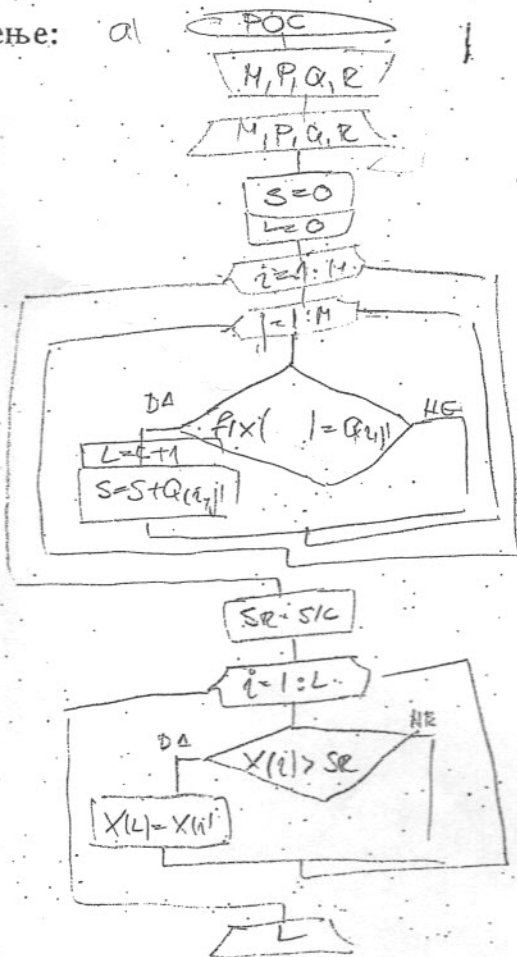 ење: а)
POC
M, P, Q, R
M, P, Q, R
S=0
L=0
i=1:M
j=1:M
DA
fix( )=Q(i,j)
HE
L=L+1
S=S+Q(i,j)
SR=S/L
i=1:L
DA
X(i)>SR
HE
X(L)=X(i)
L